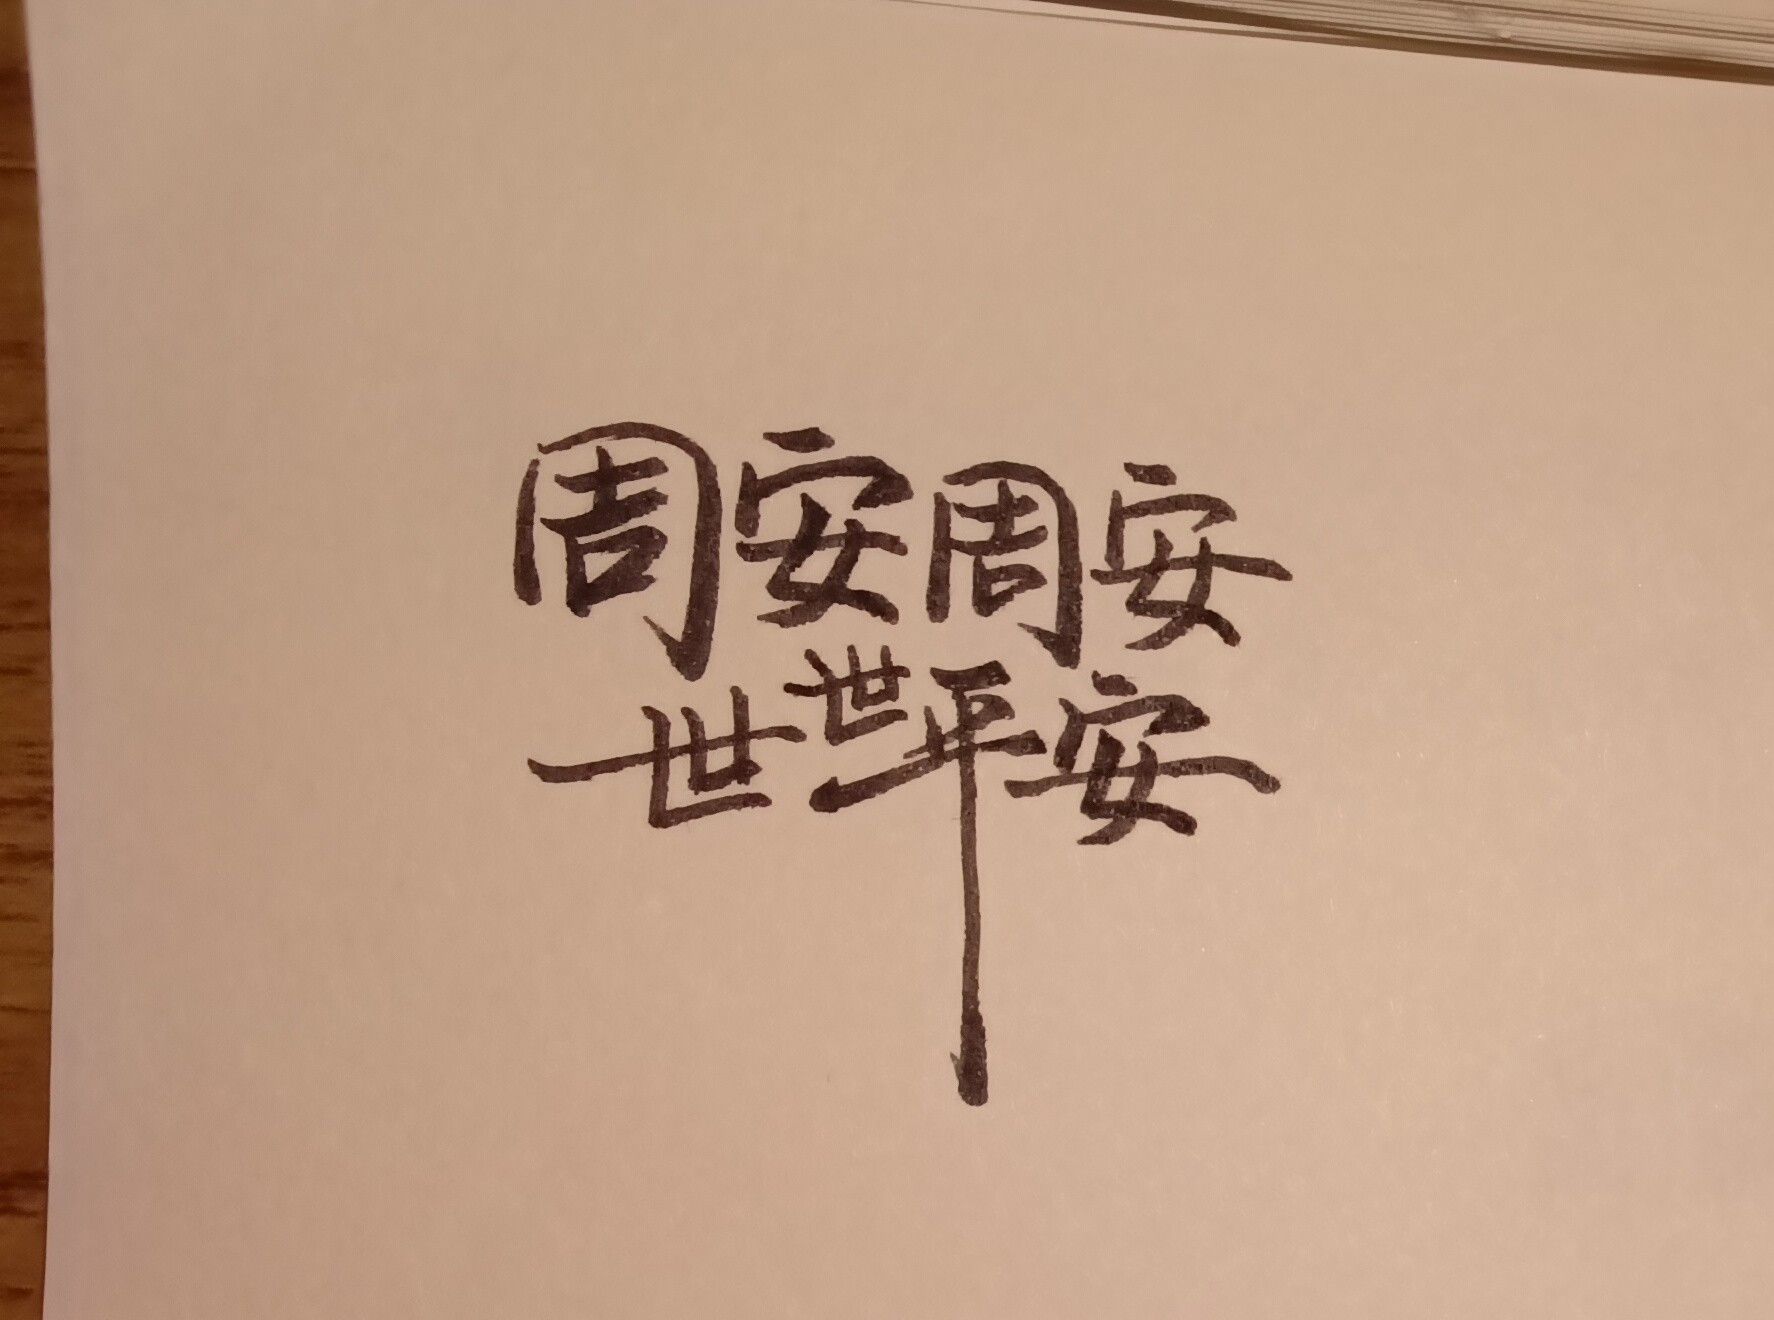 周安周安
世世平安